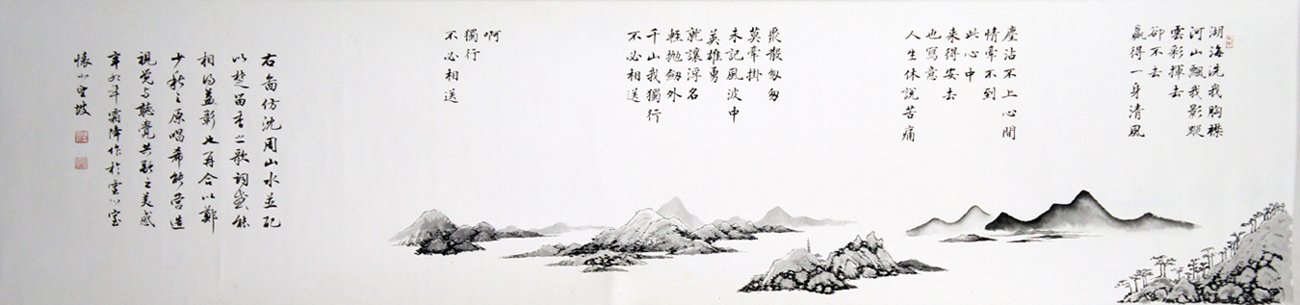 湖海洗我胸襟
河山飄我影蹤
雲彩揮去
卻不去
贏得一身清風
塵沾不上心間
情牽不到
此心中
來得安去
也寫意
人生休說苦痛
聚散匆匆
莫牽掛
未記風波中
英雄勇
就讓浮名
輕拋劍外
千山我獨行
不必相送
啊
獨行
不必相送
右畫仿沈周山水並配
以楚留香之歌詞盛能
相得益彰也再合以鄭
少秋之原唱希能營造
視覺与聽覺共融之美感
辛卯年霜降作於雲心室